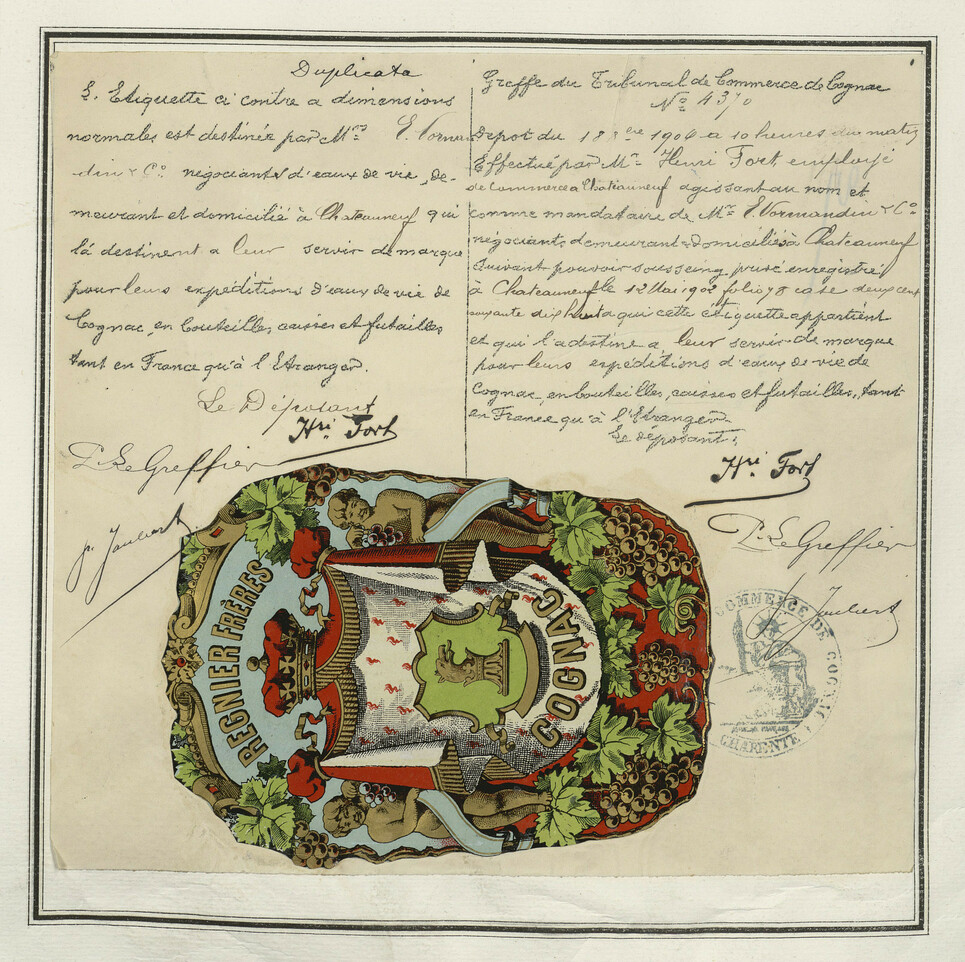 Duplicata
L'Etiquette ci contre a dimensions
normales est destinée par Mrs E. Norman
din & Co négociants d'eaux de vie, de-
meurant et domicilié à Chateauneuf qui
la destinent a leur servir de marque
pour leurs expéditions d'eaux de vie de
Cognac, en bouteilles, caisses et futailles
tant en France qu'à l'Etranger.
Le Déposant
Hri Fort
P. Le Greffier
p. Joubert
Greffe du Tribunal de Commerce de Cognac
No 4370
Depot du 18 1904 a 10 heures du matin
Effectué par Mr Henri Fort employé
de Commerce a Chateauneuf agissant au nom et
comme mandataire de Mrs E. Normandin & Co
négociants, demeurant & domiciliés à Chateauneuf
suivant pouvoir sous seing privé enregistré
à Chateauneuf le 12 Mai 1902 folio 78 case deux cent
soixante dix huit a qui cette étiquette appartient
et qui l'a destine a leur servir de marque
pour leurs expéditions d'eaux de vie de
Cognac, en bouteilles, caisses et futailles, tant
en France qu'à l'Etranger
Le déposant,
Hri Fort
P. Le Greffier
Joubert
REGNIER FRÈRES
COGNAC
COMMERCE DE COGNAC
CHARENTE